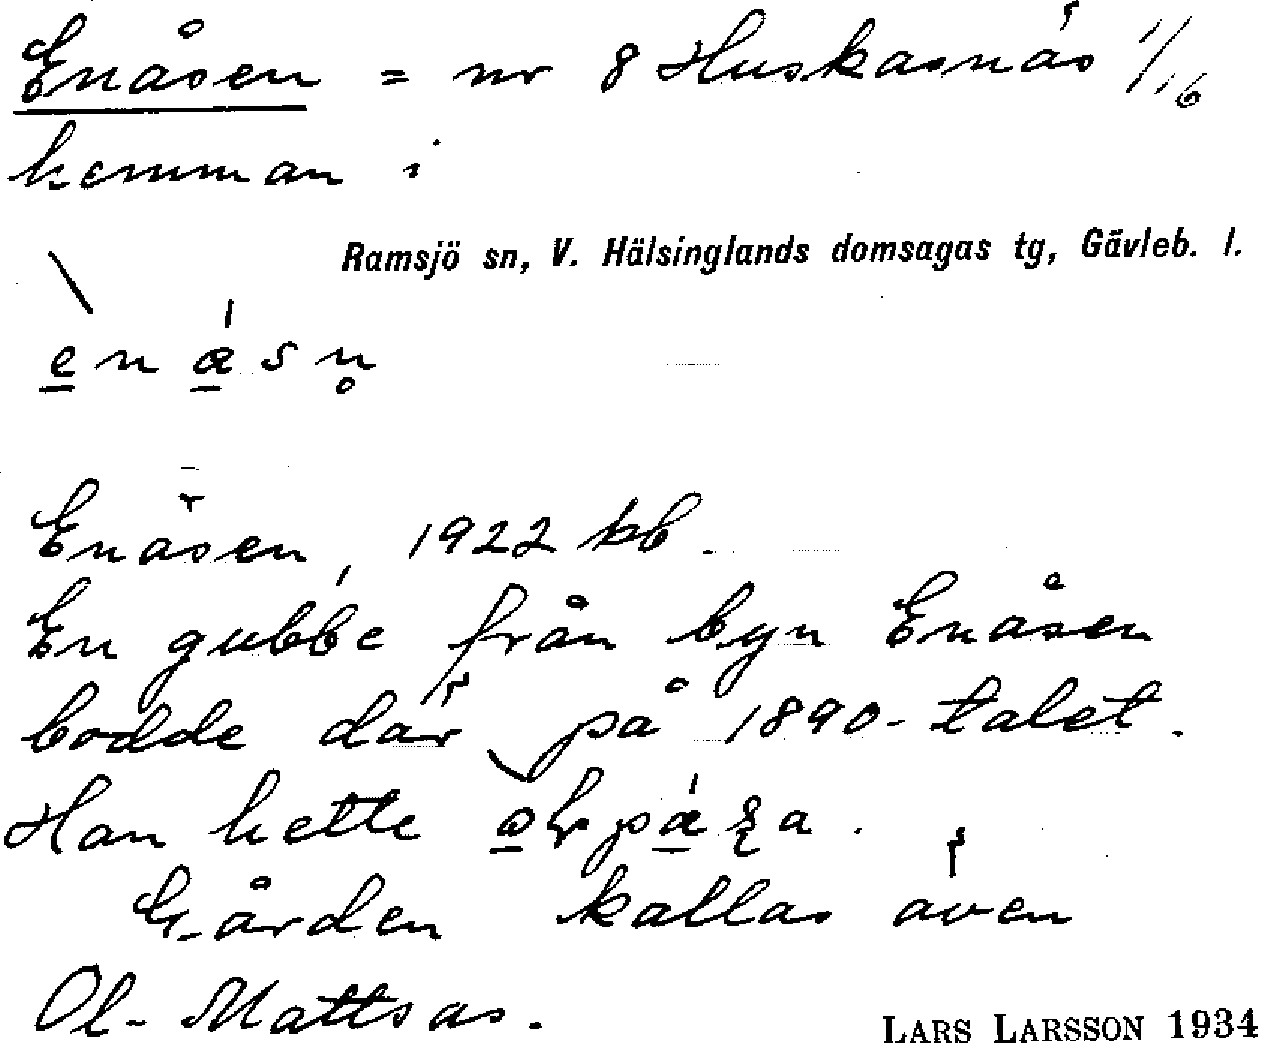 Enåsen = nr 8 Huskasnäs 1/16
hemman i
Ramsjö sn, V. Hälsinglands domsagas tg, Gävleb. l.
Enåsen, 1922 kb.
En gubbe från byn Enåsen
bodde där på 1890-talet.
Han hette
Gården kallas även
Ol-Mattsas.
LARS LARSSON 1934